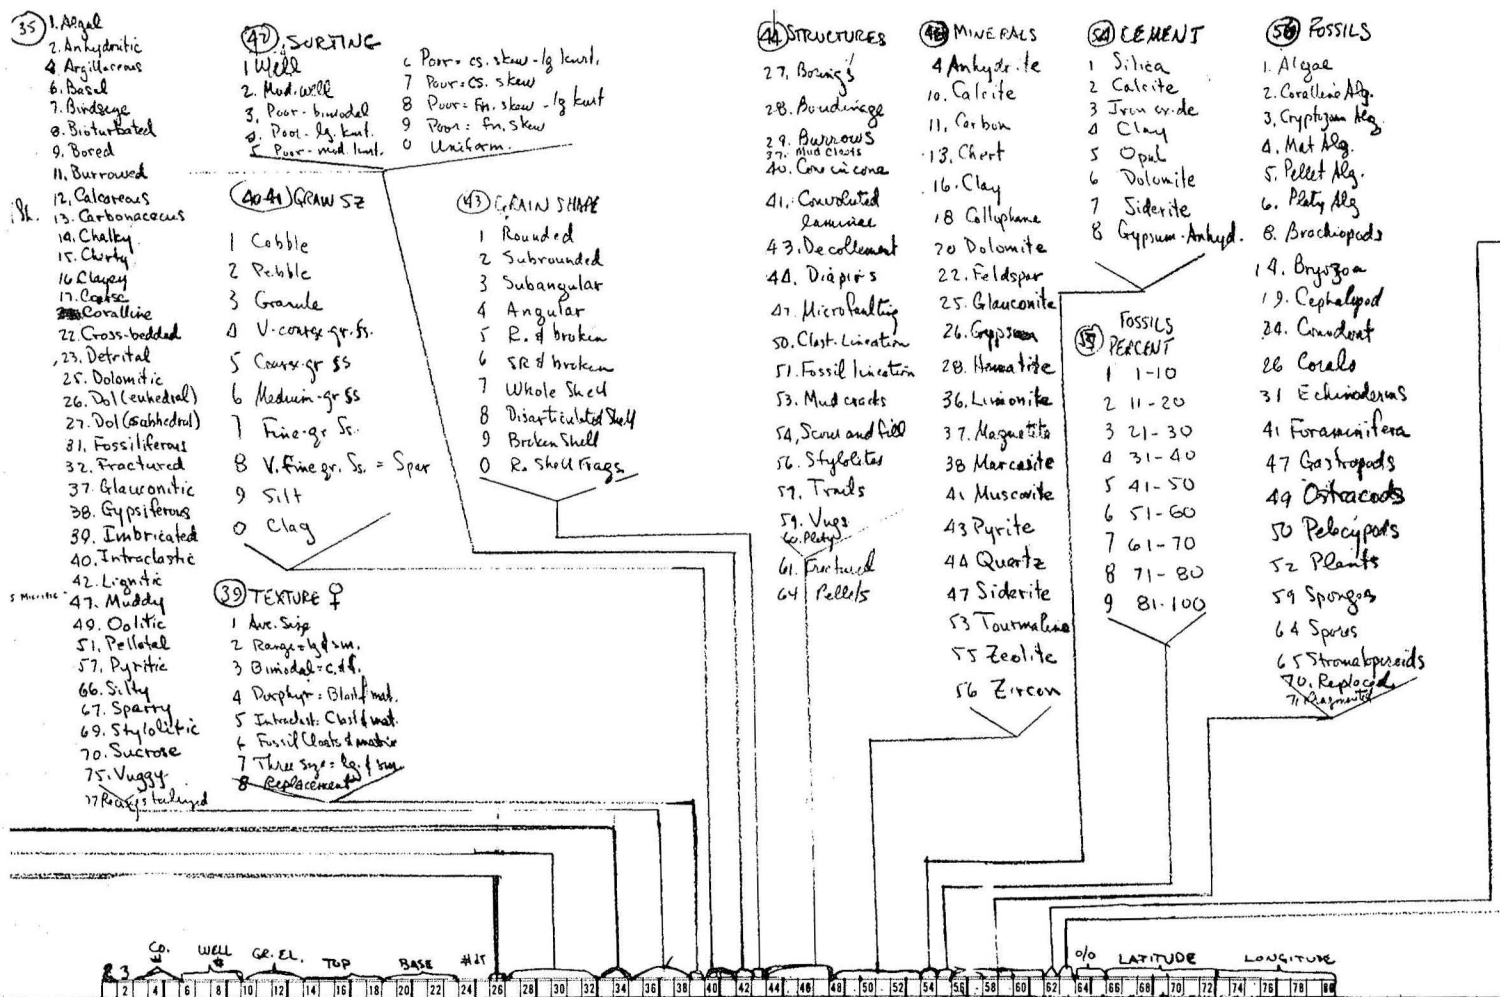 35
1. Algal
2. Anhydritic
4. Argillaceous
6. Basal
7. Birdseye
8. Bioturbated
9. Bored
11. Burrowed
12. Calcareous
13. Carbonaceous
14. Chalky
15. Cherty
16 Clayey
17. Coarse
Coralline
22. Cross-bedded
23. Detrital
25. Dolomitic
26. Dol (euhedral)
27. Dol (subhedral)
31. Fossiliferous
32. Fractured
37. Glauconitic
38. Gypsiferous
39. Imbricated
40. Intraclastic
42. Lignitic
47. Muddy
49. Oolitic
51. Pelletal
57. Pyritic
66. Silty
67. Sparry
69. Stylolitic
70. Sucrose
75. Vuggy
42 SORTING
1 Well
2. Mod. well
3. Poor - bimodal
4. Poor - lg. kurt.
5 Poor - mod. kurt.
6 Poor = cs. skew - lg kurt.
7 Poor = cs. skew
8 Poor = fn. skew - lg kurt
9 Poor = fn. skew
0 Uniform.
40-41 GRAIN SZ
1 Cobble
2 Pebble
3 Granule
4 V. coarse gr. ss.
5 Coarse-gr ss
6 Medium-gr ss
7 Fine-gr Ss.
8 V. fine gr. Ss. = Spar
9 Silt
0 Clag
39 TEXTURE ♀
1 Ave. Size
2 Range = lg & sm.
3 Bimodal = c. & f.
4 Porphyr: Blast & mat.
5 Intraclast: Clast & mat.
6 Fossil Clasts & matrix
7 Three sizes = lg. & sm.
8 Replacement
43 GRAIN SHAPE
1 Rounded
2 Subrounded
3 Subangular
4 Angular
5 R. & broken
6 SR & broken
7 Whole Shell
8 Disarticulated Shell
9 Broken Shell
0 R. Shell Frags.
44 STRUCTURES
27. Borings
28. Boudinage
29. Burrows
37. Mud Clasts
40. Cone in cone
41. Convoluted
laminae
43. Decollement
44. Diapirs
47. Microfaulting
50. Clast. Lineation
51. Fossil lineation
53. Mud cracks
54. Scour and fill
56. Stylolites
57. Trails
59. Vugs
60. Platy
61. Fractured
64 Pellets
MINERALS
4 Anhydrite
10. Calcite
11. Carbon
13. Chert
16. Clay
18 Collophane
20 Dolomite
22. Feldspar
25. Glauconite
26. Gypsum
28. Hematite
36. Limonite
37. Magnetite
38 Marcasite
41 Muscovite
43 Pyrite
44 Quartz
47 Siderite
53 Tourmaline
55 Zeolite
56 Zircon
54 CEMENT
1 Silica
2 Calcite
3 Iron oxide
4 Clay
5 Opal
6 Dolomite
7 Siderite
8 Gypsum-Anhyd.
FOSSILS
PERCENT
1 1-10
2 11-20
3 21-30
4 31-40
5 41-50
6 51-60
7 61-70
8 71-80
9 81-100
56 FOSSILS
1. Algae
2. Coralline Alg.
3. Cryptozoan Alg.
4. Mat Alg.
5. Pellet Alg.
6. Platy Alg
8. Brachiopods
14. Bryozoa
19. Cephalopod
24. Conodont
26 Corals
31 Echinoderms
41 Foraminifera
47 Gastropods
49 Ostracods
50 Pelecypods
52 Plants
59 Sponges
64 Spores
65 Stromatoporoids
70. Replaced
71 Fragments
2 3 Co. # WELL # GR. EL. TOP BASE o/o LATITUDE LONGITUDE
2 4 6 8 10 12 14 16 18 20 22 24 26 28 30 32 34 36 38 40 42 44 46 48 50 52 54 56 58 60 62 64 66 68 70 72 74 76 78 80